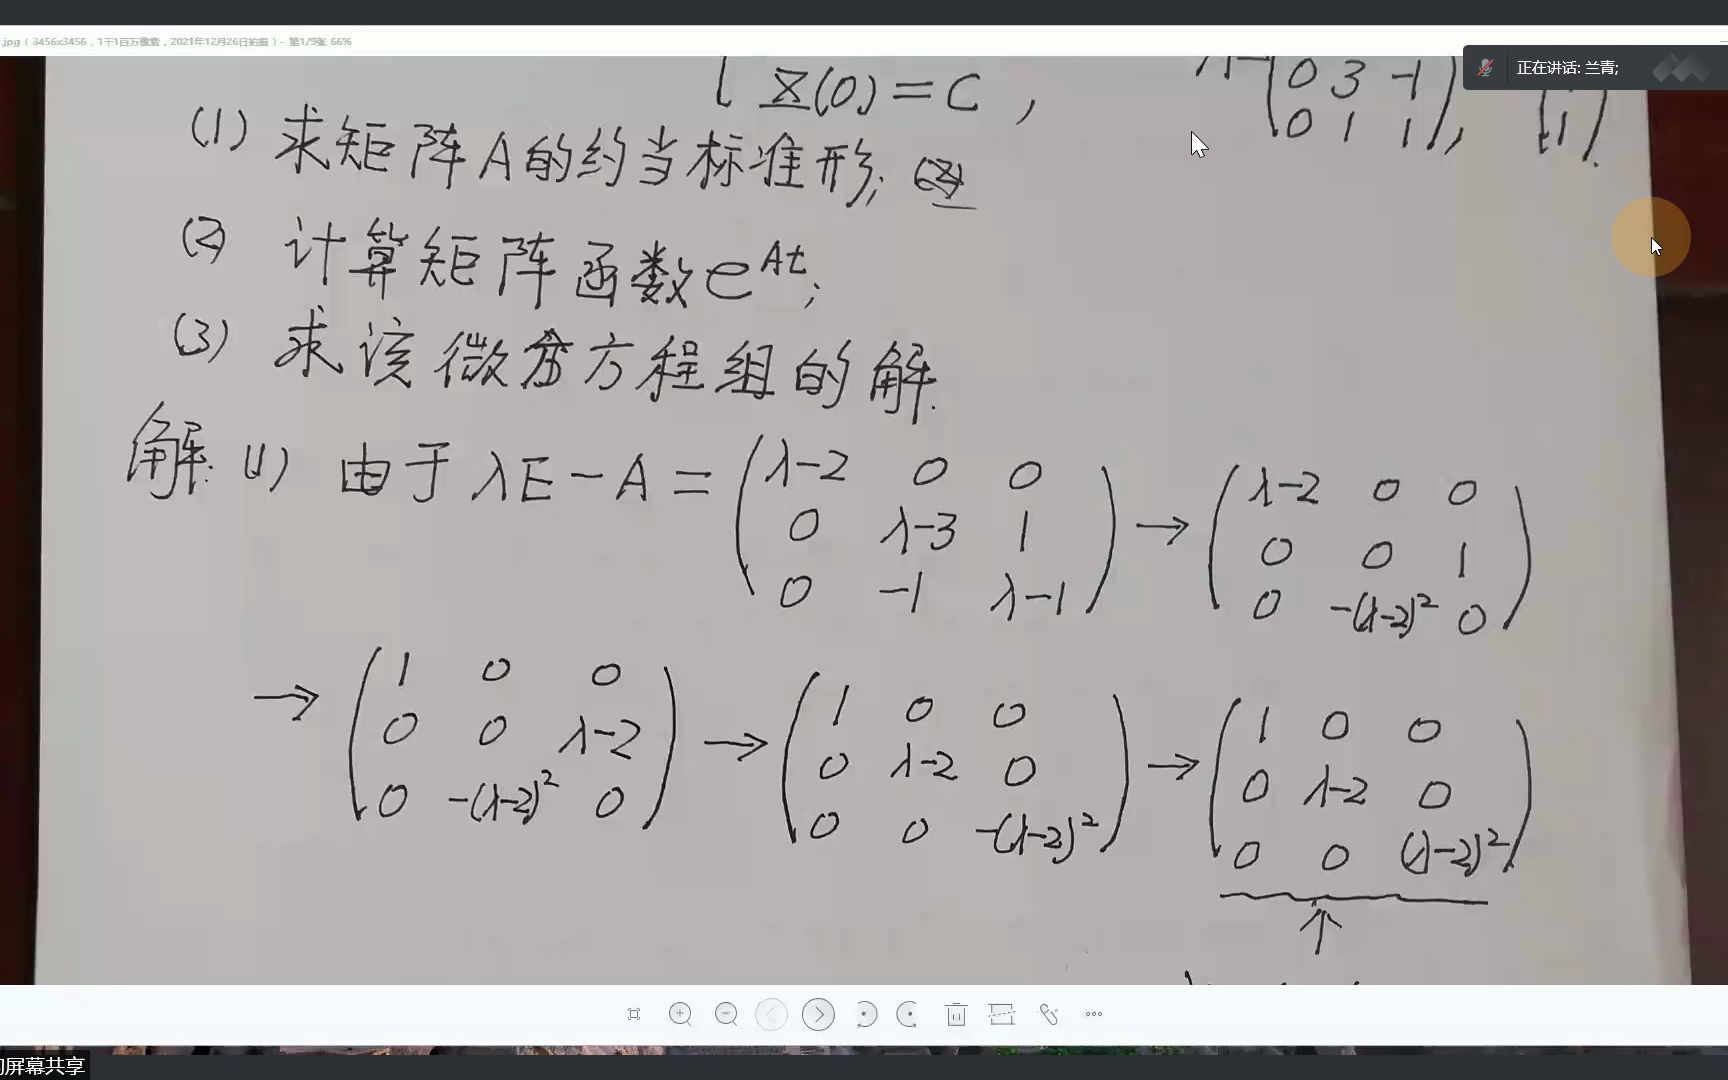 .jpg ( 3456x3456, 1千1百万像素, 2021年12月26日拍摄 ) - 第1/9张 66%
正在讲话: 兰青;
X(0) = C ,
0 3 -1
0 1 1 ,
1 .
(1) 求矩阵A的约当标准形;
(2) 计算矩阵函数e^{At};
(3) 求该微分方程组的解.
解: (1) 由于 λE-A = (λ-2 0 0; 0 λ-3 1; 0 -1 λ-1) → (λ-2 0 0; 0 0 1; 0 -(λ-2)² 0)
→ (1 0 0; 0 0 λ-2; 0 -(λ-2)² 0) → (1 0 0; 0 λ-2 0; 0 0 -(λ-2)²) → (1 0 0; 0 λ-2 0; 0 0 (λ-2)²)
↑
的屏幕共享